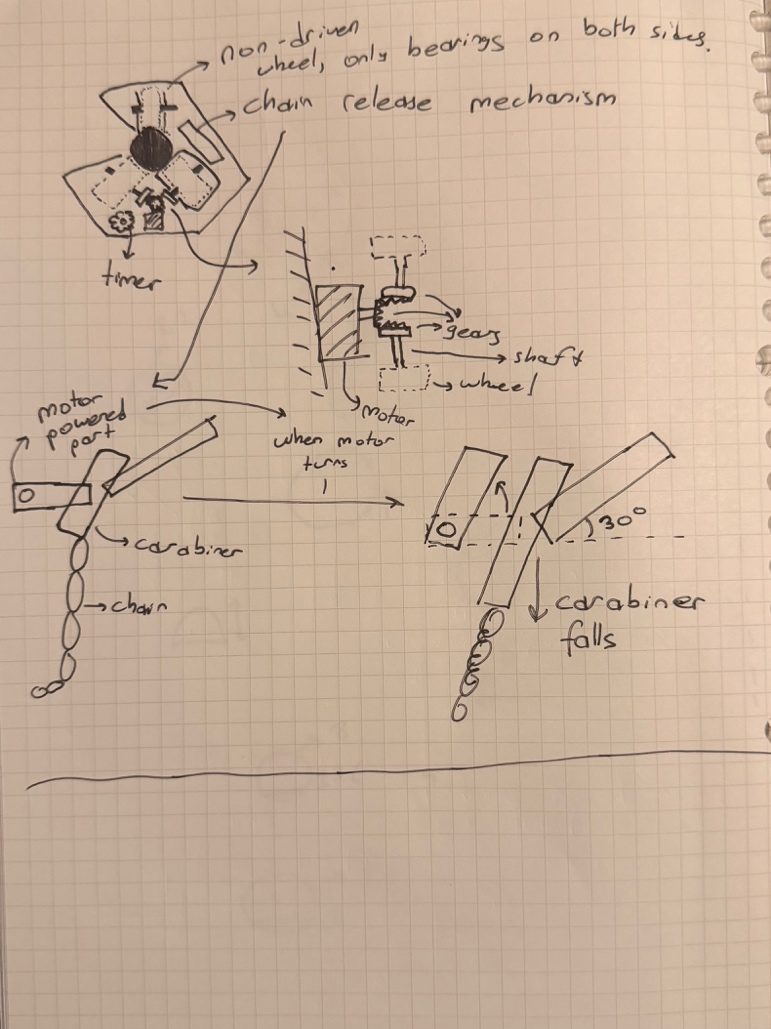 non-driven
wheel, only bearings on both sides.
chain release mechanism
timer
gears
shaft
wheel
motor
motor
powered
part
when motor
turns
carabiner
chain
30°
carabiner
falls